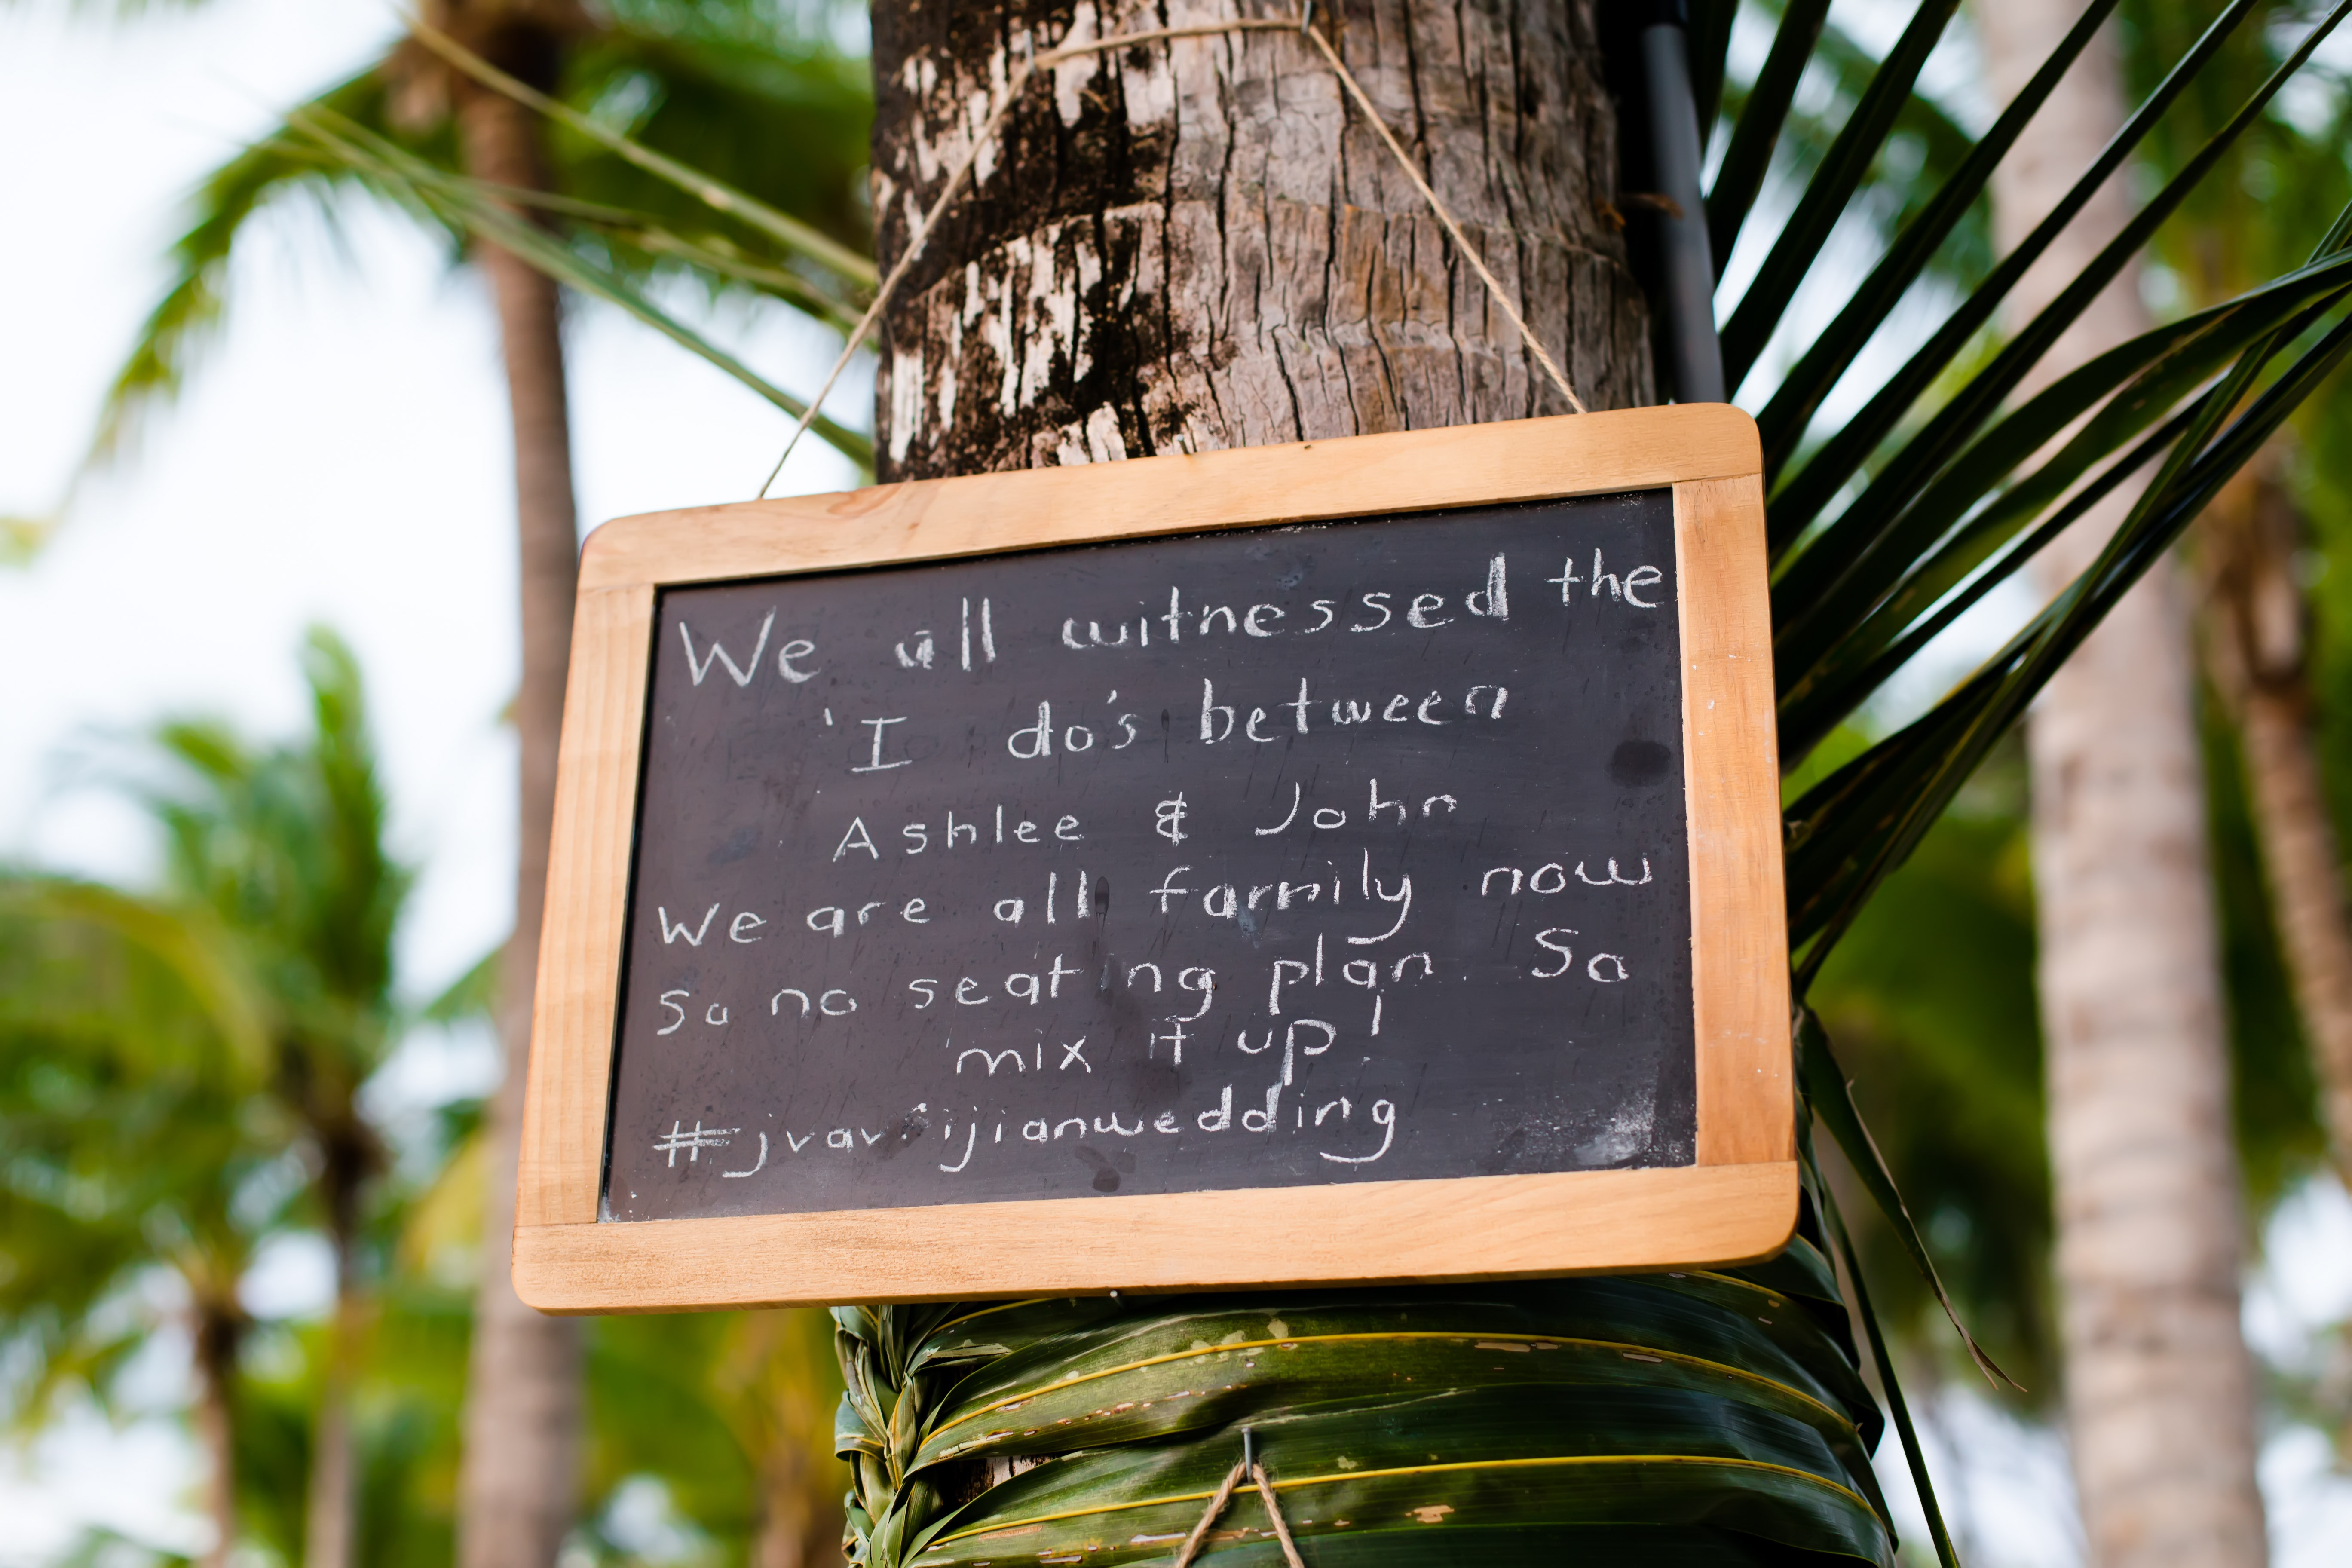 We all witnessed the
'I do's between
Ashlee & John
We are all family now
So no seating plan. So
mix it up!